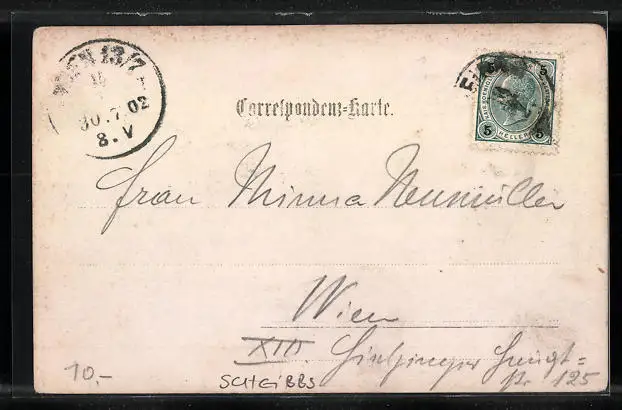 WIEN 13/7
30.7.02
8.V
Correspondenz-Karte.
5 5
5 HELLER 5
Frau Minna Neumüller
Wien
XIII Hietzinger Haupt=
str. 125
10.-
SCHEIBBS